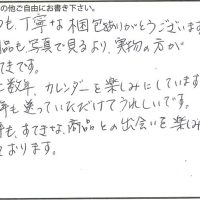 の他ご自由にお書き下さい。
も、丁寧な梱包ありがとうございます
品も写真で見るより、実物の方が
てきです。
数年、カレンダーを楽しみにしています
年も送っていただけてうれしいです。
も、すてきな、商品との出会いを楽しみ
ております。